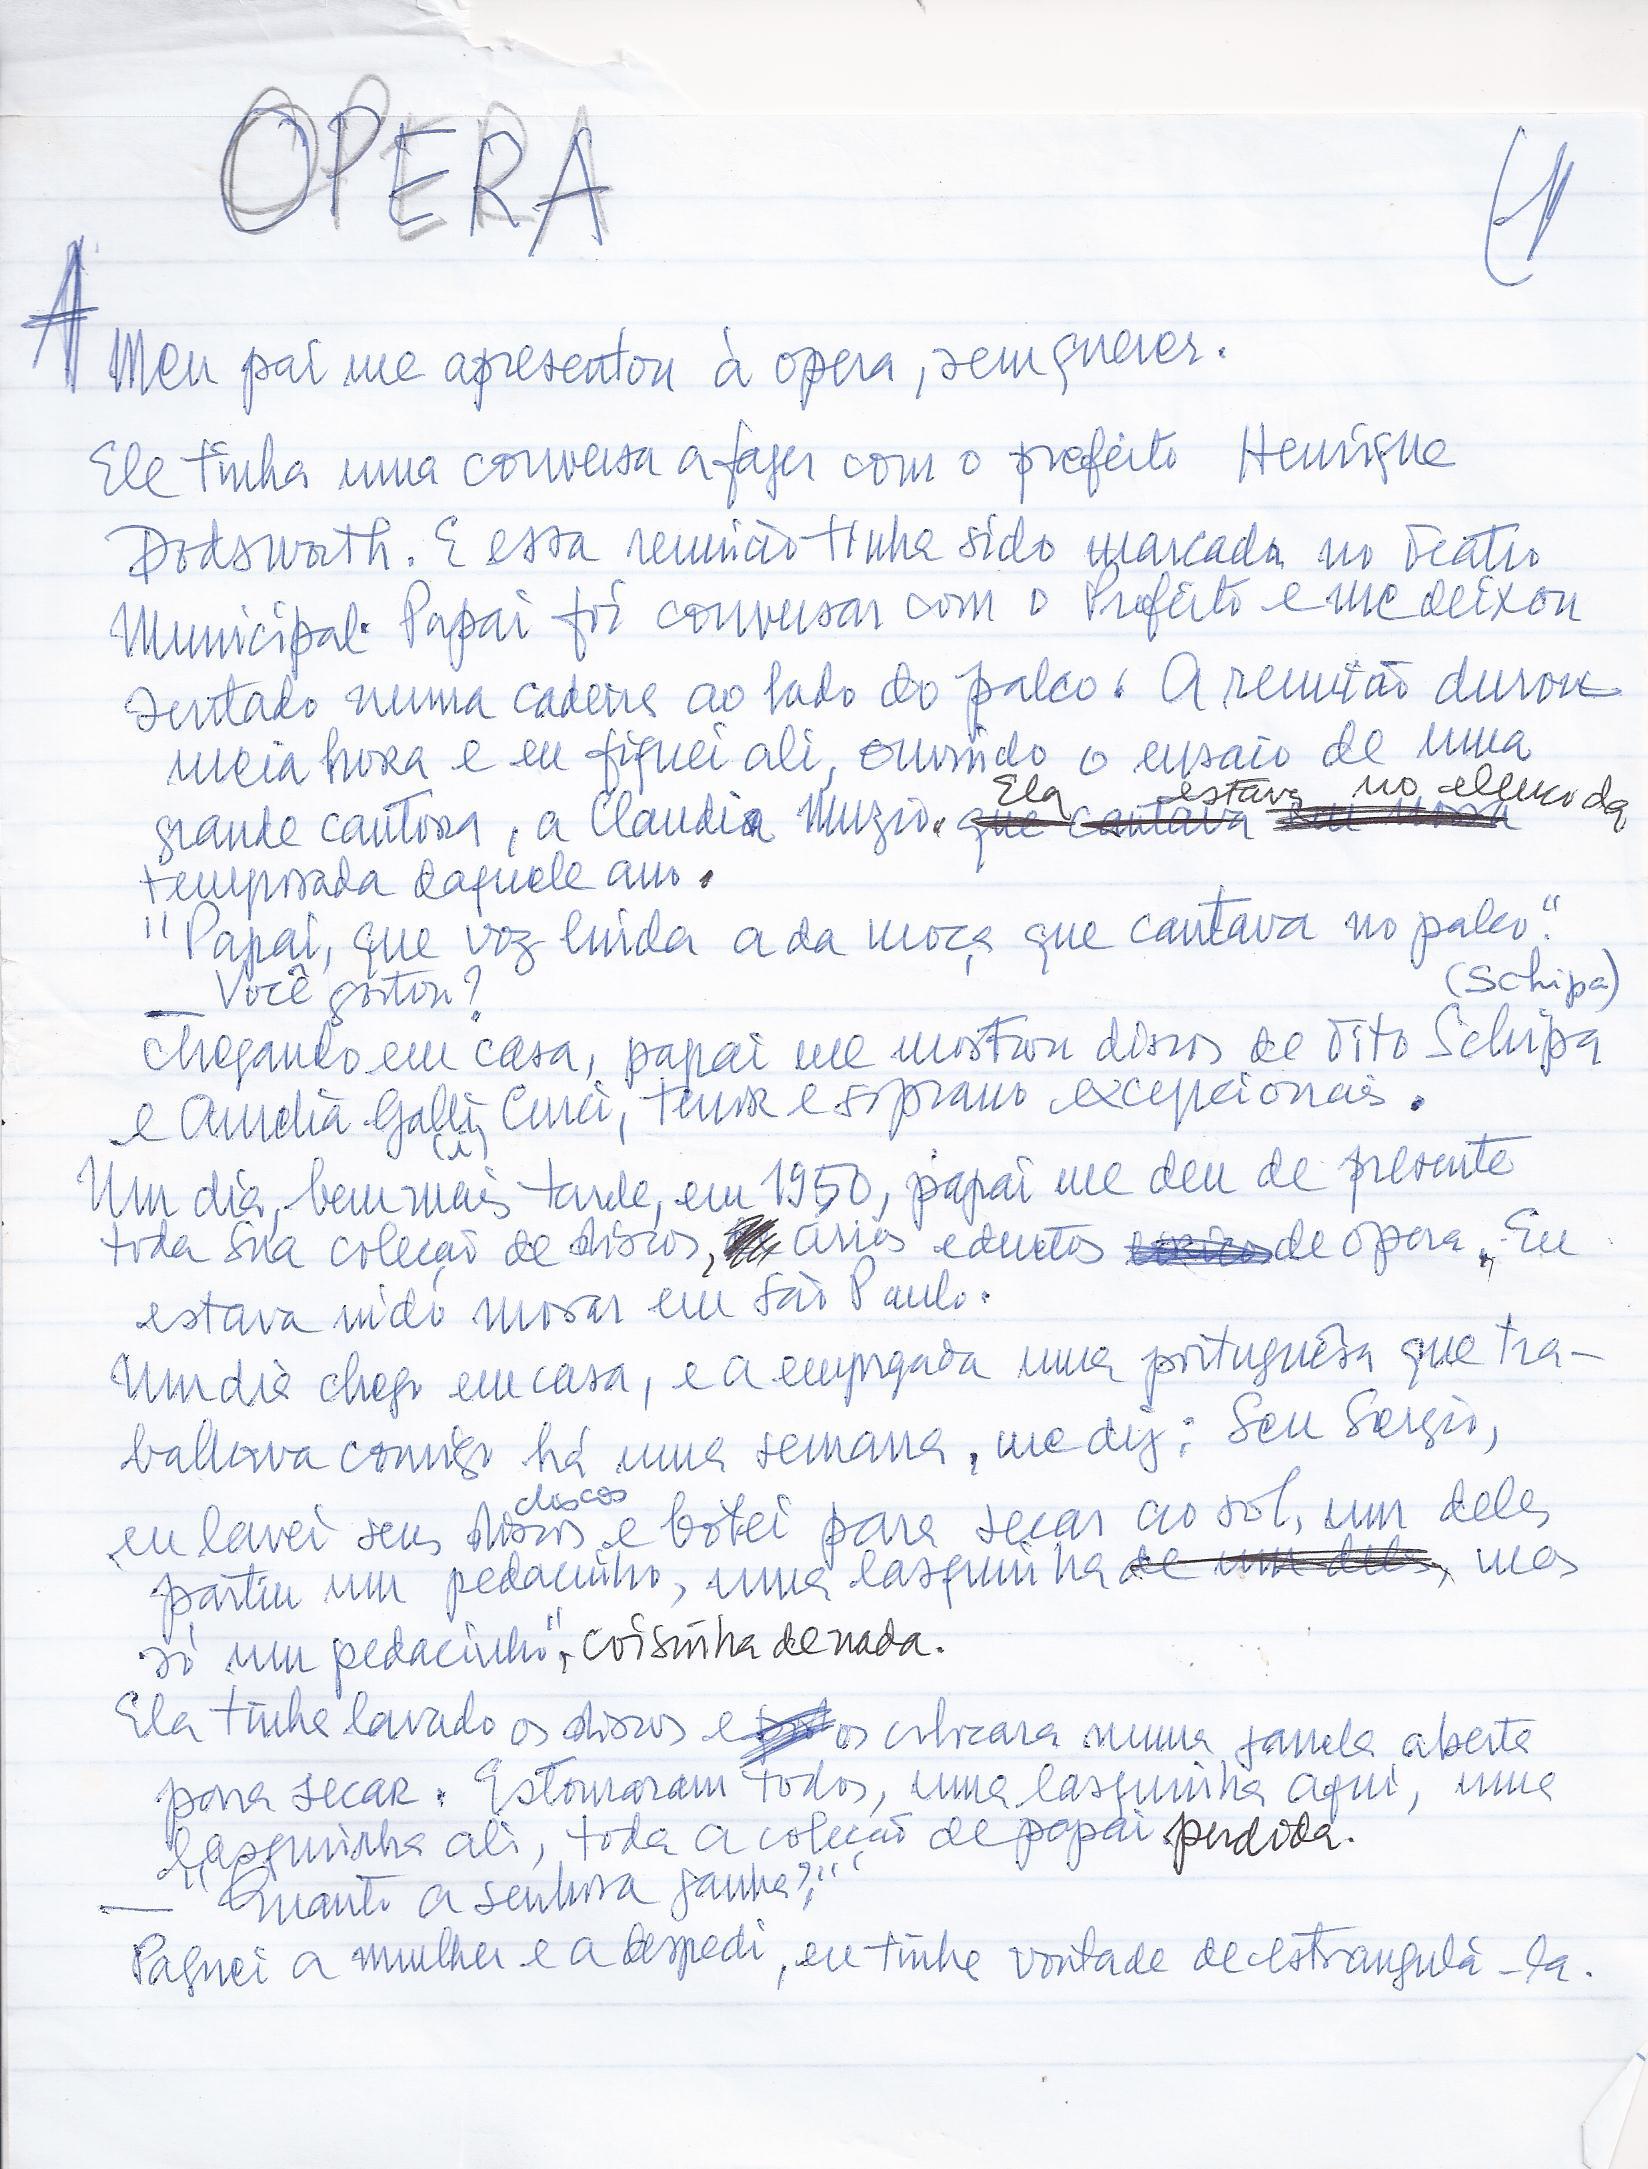 OPERA
A
Meu pai me apresentou à opera, sem querer.
Ele tinha uma conversa a fazer com o prefeito Henrique
Dodsworth. E essa reunião tinha sido marcada no Teatro
Municipal. Papai foi conversar com o Prefeito e me deixou
sentado numa cadeira ao lado do palco. A reunião durou
meia hora e eu fiquei ali, ouvindo o ensaio de uma
grande cantora, a Claudia Muzio. que cantava Ela estava no elenco da
temporada daquele ano.
"Papai, que voz linda a da moça que cantava no palco."
— Você gostou?
(Schipa)
Chegando em casa, papai me mostrou discos de Tito Schipa
e Amelia Galli Curci, tenor e soprano excepcionais.
(i)
Um dia, bem mais tarde, em 1950, papai me deu de presente
toda sua coleção de discos, árias e duetos de opera. Eu
estava indo morar em São Paulo.
Um dia chego em casa, e a empregada uma portuguêsa que tra-
balhava comigo há uma semana, me diz: Seu Sergio,
discos
eu lavei seus discos e botei para secar ao sol, um deles
partiu um pedacinho, uma lasquinha de um deles, mas
só um pedacinho", coisinha de nada.
Ela tinha lavado os discos e os colocara numa janela aberta
para secar. Estouraram todos, uma lasquinha aqui, uma
lasquinha ali, toda a coleção de papai perdida.
— "Quanto a senhora ganha?"
Paguei a mulher e a despedi, eu tinha vontade de estrangulá-la.